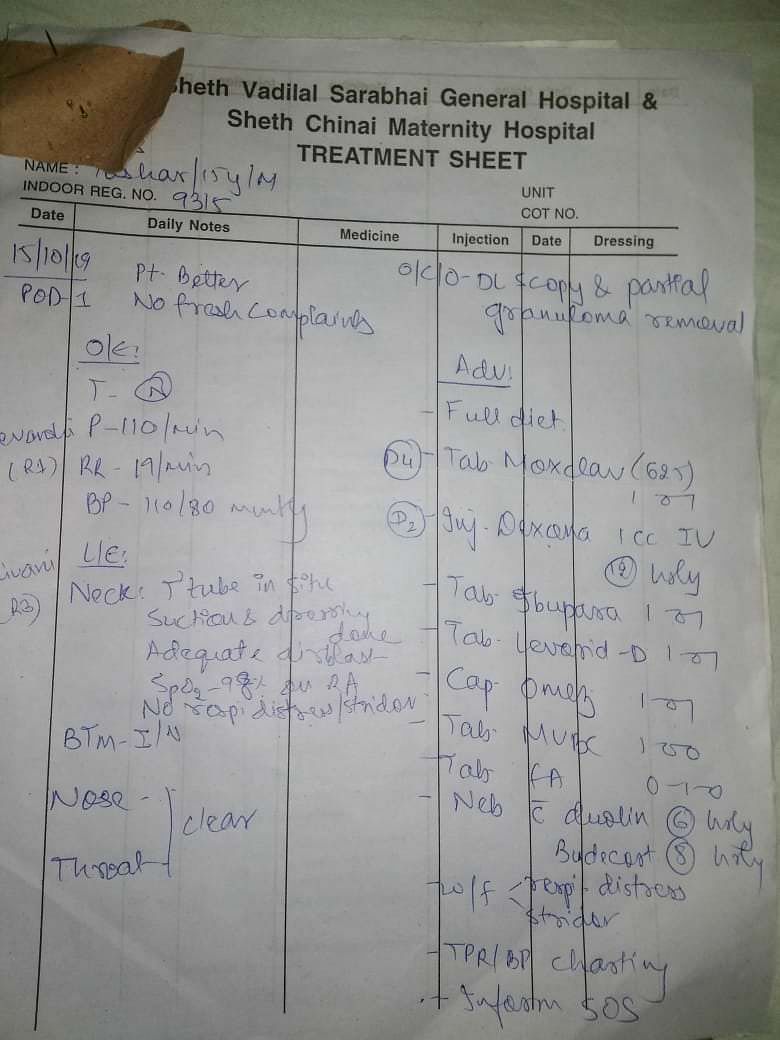 Sheth Vadilal Sarabhai General Hospital &
Sheth Chinai Maternity Hospital
TREATMENT SHEET
NAME : /15y/M
INDOOR REG. NO. 9315
UNIT
COT NO.
Date Daily Notes Medicine Injection Date Dressing
15/10/19
POD-1
Pt. Better
No fresh complaints
O/E:
T- (N)
P-110/min
(R1) RR - 19/min
BP - 110/80 mmHg
L/E:
R3)
Neck: T' tube in situ
Suction & dressing
done
Adequate airblast
SpO2-98% on RA
No respi distress/stridor
BTM-I/N
Nose -
Throat -
clear
O/C/O-DL scopy & partial
granuloma removal
Adv:
- Full diet
(D4) - Tab Moxclav (625)
1-01
(D2) - Inj. Dexona 1 cc IV
(12) hrly
- Tab. Ibupara 1-01
- Tab. Levorid-D 1-01
- Cap. Omez 1-01
- Tab. MVBC 1-00
Tab FA 0-1-0
- Neb c̄ duolin (6) hrly
Budecort (8) hrly
- W/f respi. distress
stridor
- TPR/BP charting
- Inform SOS